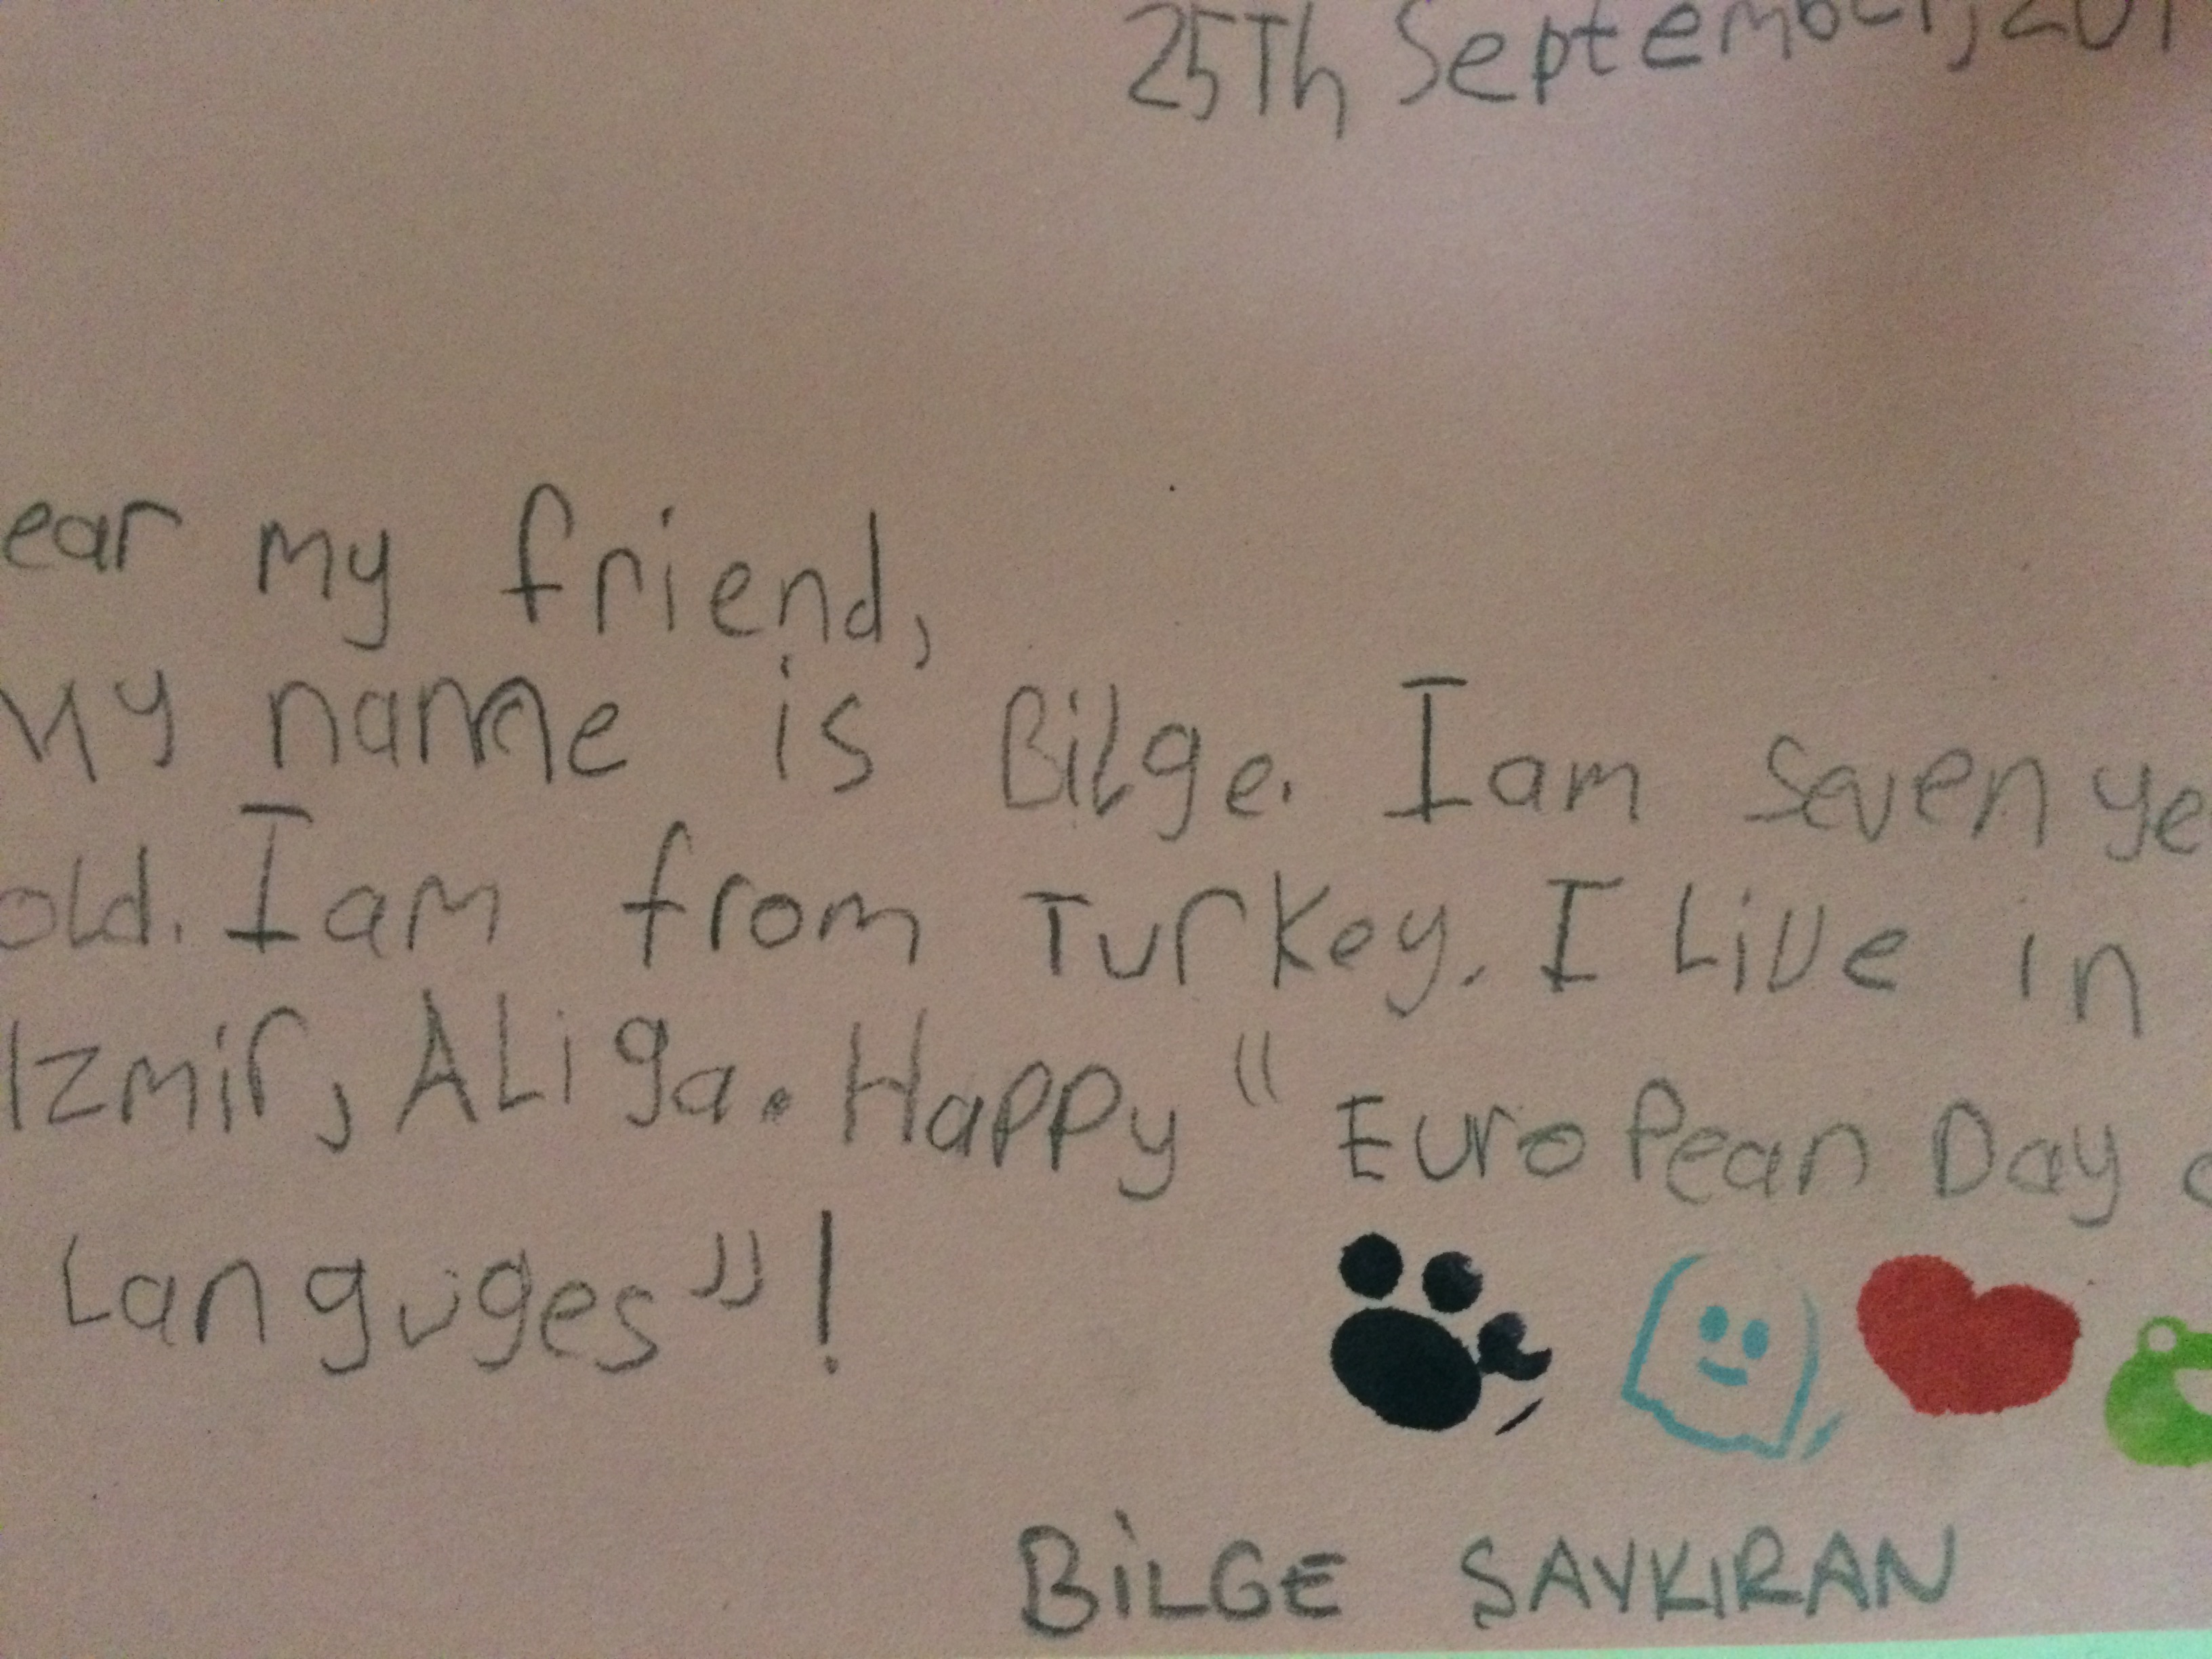 25Th September, 201
ear my friend,
My name is Bilge. I am seven ye
old. I am from Turkey. I Live in
Izmir, ALiga. Happy "European Day o
Languges"!
BİLGE SAYKIRAN